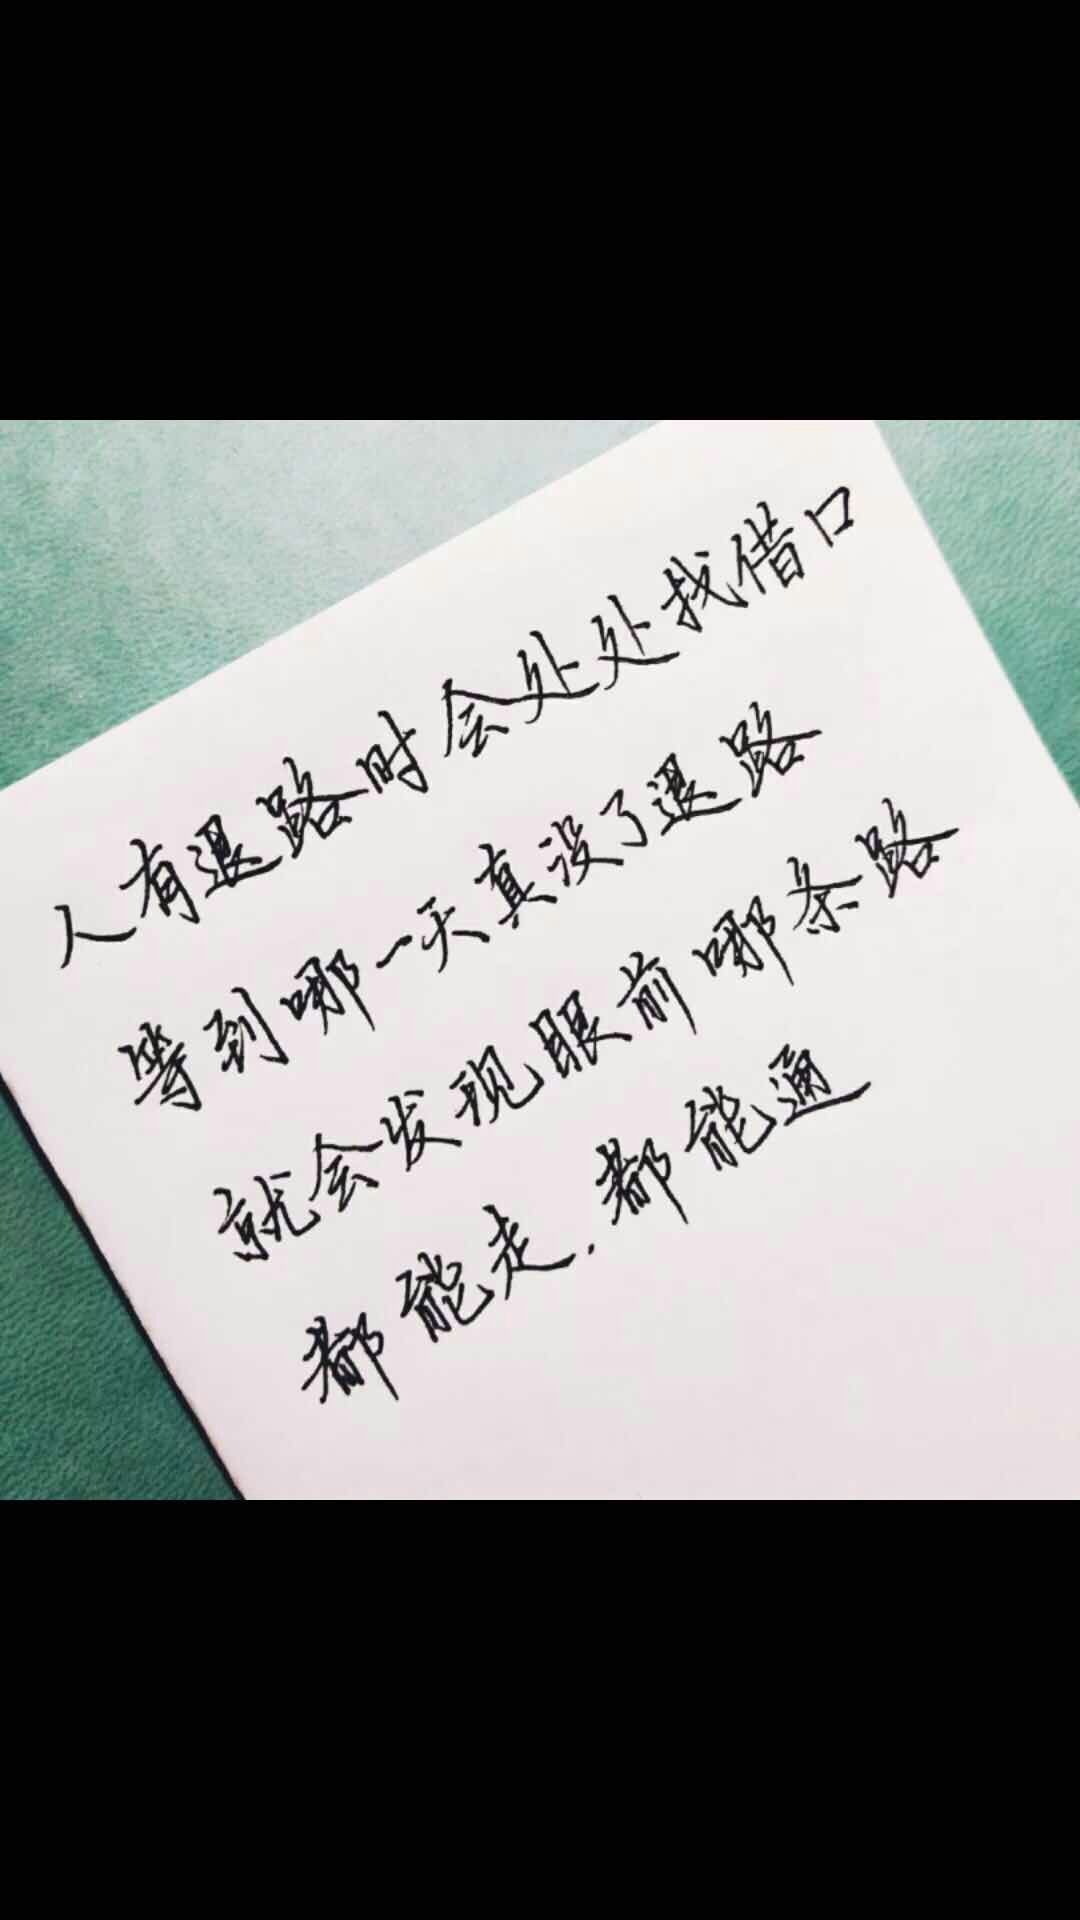 人有退路时会处处找借口
等到哪一天真没了退路
就会发现眼前哪条路
都能走.都能通